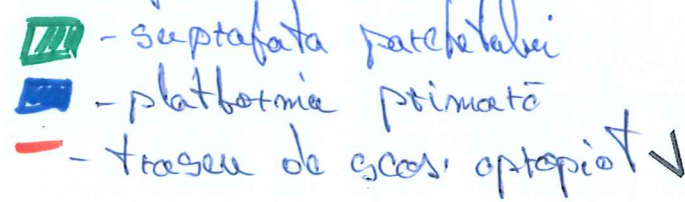 - suprafata parchetului
- platforma primară
- traseu de scos. apropiat